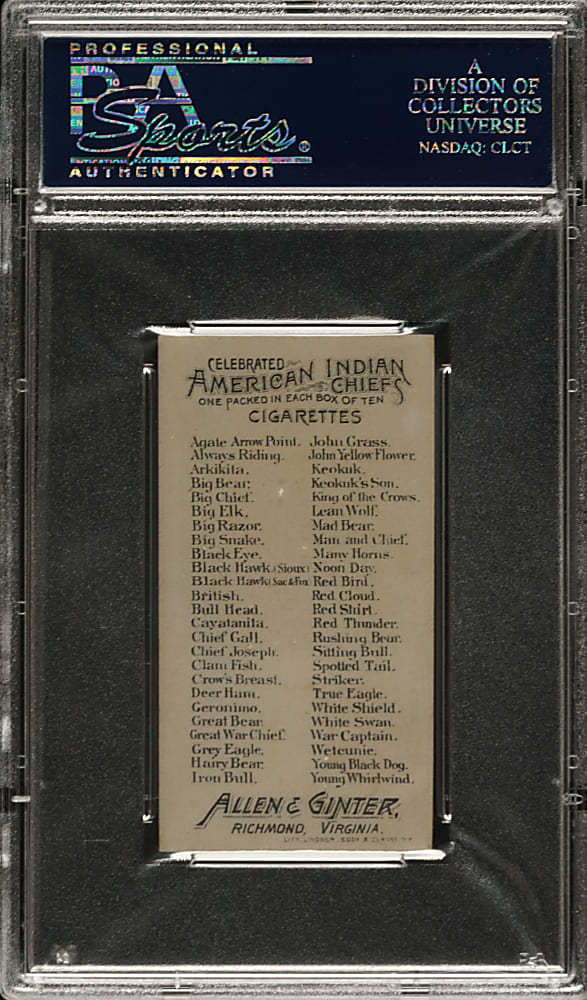 PROFESSIONAL
PSA
Sports®
AUTHENTICATOR
A
DIVISION OF
COLLECTORS
UNIVERSE
NASDAQ: CLCT
CELEBRATED
AMERICAN INDIAN
CHIEFS
ONE PACKED IN EACH BOX OF TEN
CIGARETTES
Agate Arrow Point.
Always Riding.
Arkikita.
Big Bear.
Big Chief.
Big Elk.
Big Razor.
Big Snake.
Black Eye.
Black Hawk.(Sioux)
Black Hawk(Sac&Fox
British.
Bull Head.
Cayatanita.
Chief Gall.
Chief Joseph.
Clam Fish.
Crow's Breast.
Deer Ham.
Geronimo.
Great Bear.
Great War Chief.
Grey Eagle.
Hairy Bear.
Iron Bull.
John Grass.
John Yellow Flower.
Keokuk.
Keokuk's Son.
King of the Crows.
Lean Wolf.
Mad Bear.
Man and Chief.
Many Horns.
Noon Day.
Red Bird.
Red Cloud.
Red Shirt.
Red Thunder.
Rushing Bear.
Sitting Bull.
Spotted Tail.
Striker.
True Eagle.
White Shield.
White Swan.
War Captain.
Wetcunie.
Young Black Dog.
Young Whirlwind.
ALLEN & GINTER,
RICHMOND, VIRGINIA.
LITH. LINDNER, EDDY & CLAUSS, N.Y.